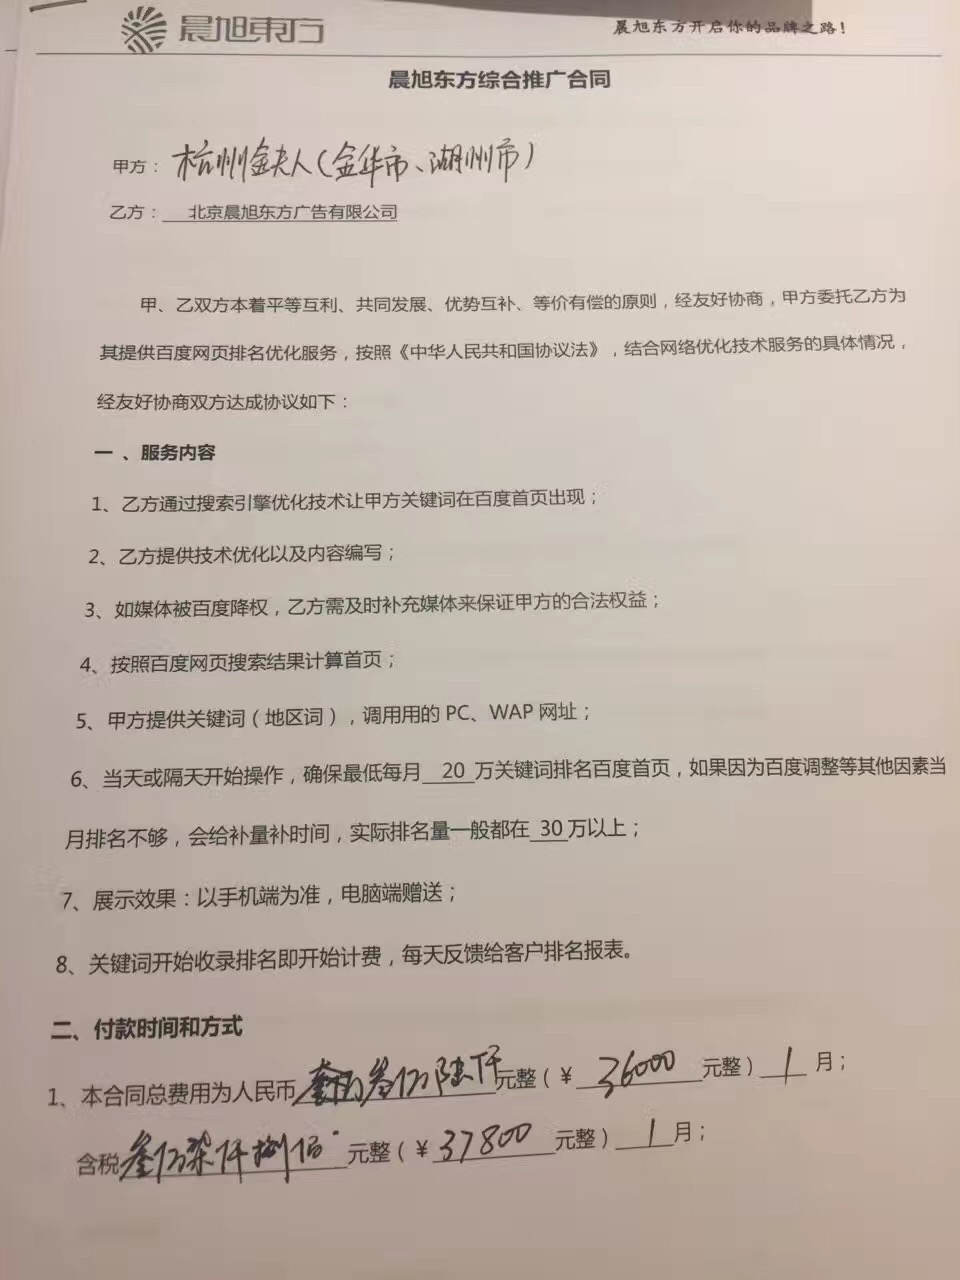 晨旭東方
晨旭东方开启你的品牌之路！
晨旭东方综合推广合同
甲方：杭州金夫人（金华市、湖州市）
乙方：北京晨旭东方广告有限公司
甲、乙双方本着平等互利、共同发展、优势互补、等价有偿的原则，经友好协商，甲方委托乙方为
其提供百度网页排名优化服务，按照《中华人民共和国协议法》，结合网络优化技术服务的具体情况，
经友好协商双方达成协议如下：
一 、服务内容
1、乙方通过搜索引擎优化技术让甲方关键词在百度首页出现；
2、乙方提供技术优化以及内容编写；
3、如媒体被百度降权，乙方需及时补充媒体来保证甲方的合法权益；
4、按照百度网页搜索结果计算首页；
5、甲方提供关键词（地区词），调用用的 PC、WAP 网址；
6、当天或隔天开始操作，确保最低每月 20 万关键词排名百度首页，如果因为百度调整等其他因素当
月排名不够，会给补量补时间，实际排名量一般都在 30 万以上；
7、展示效果：以手机端为准，电脑端赠送；
8、关键词开始收录排名即开始计费，每天反馈给客户排名报表。
二、付款时间和方式
1、本合同总费用为人民币 叁万陆仟 元整（￥ 36000 元整）1 月；
含税 叁万柒仟捌佰 元整（￥ 37800 元整）1 月；